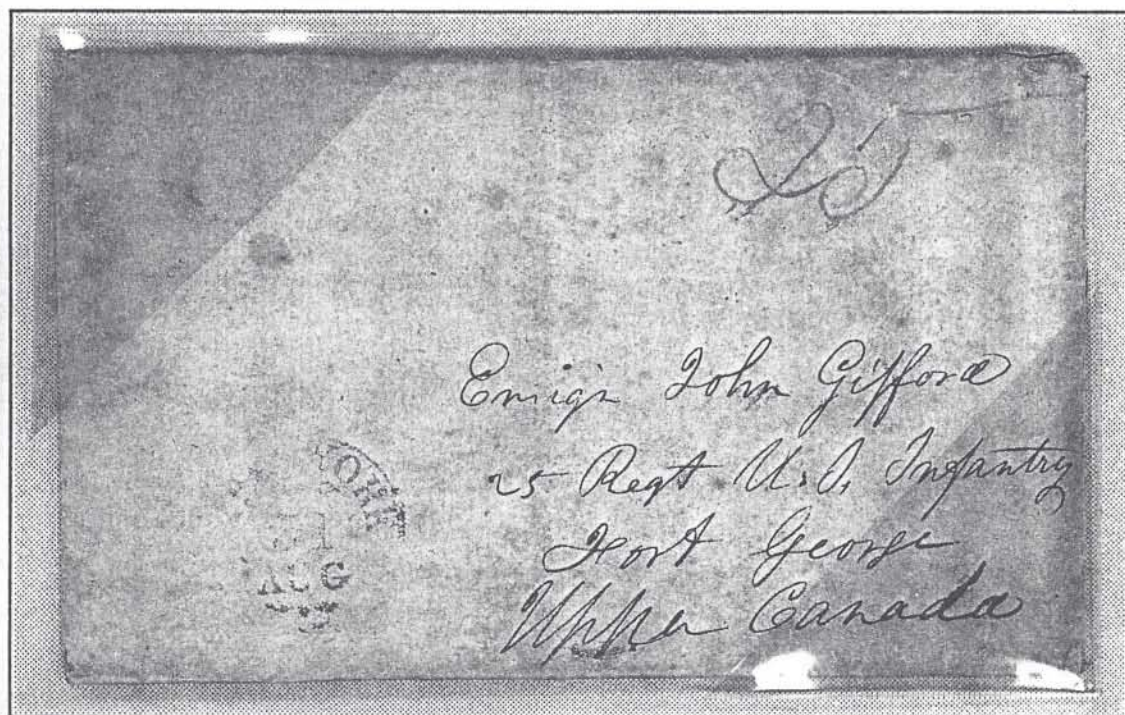 25
Ensign John Gifford
25 Regt U.S. Infantry
Fort George
Upper Canada
YORK
AUG